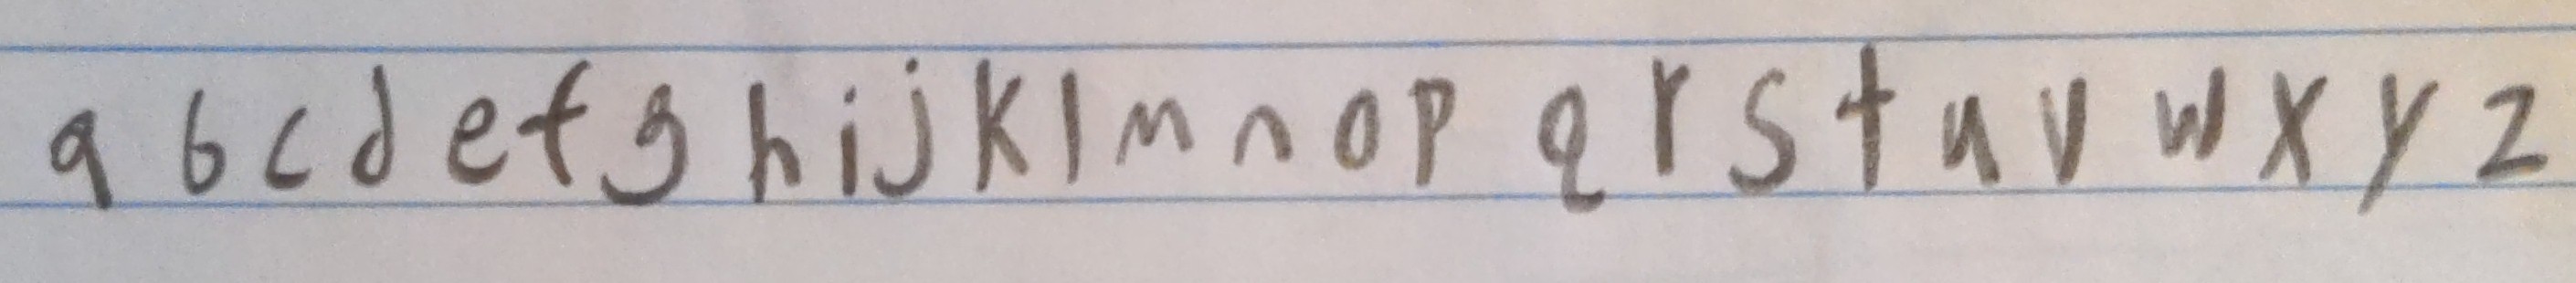 a b c d e f g h i j k l m n o p q r s t u v w x y z